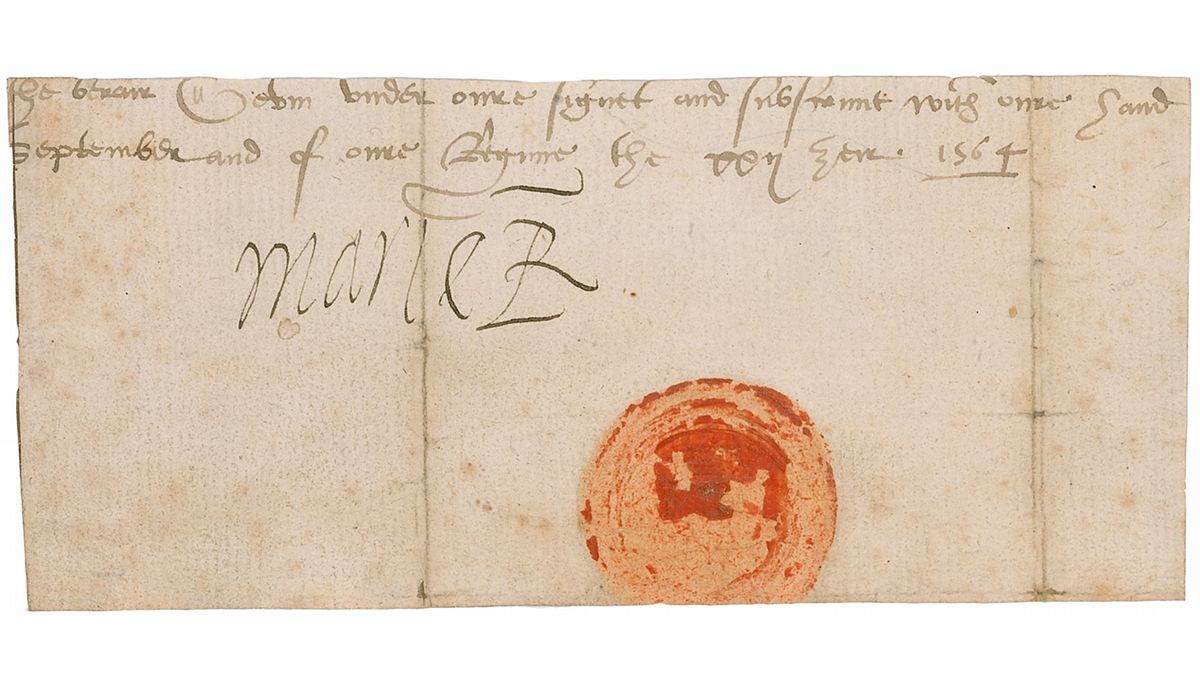 the berair Gevin vnder oure signet and subscriuit with oure hand
September and of oure Regnne the xxij Zeir. 1564
Marie R